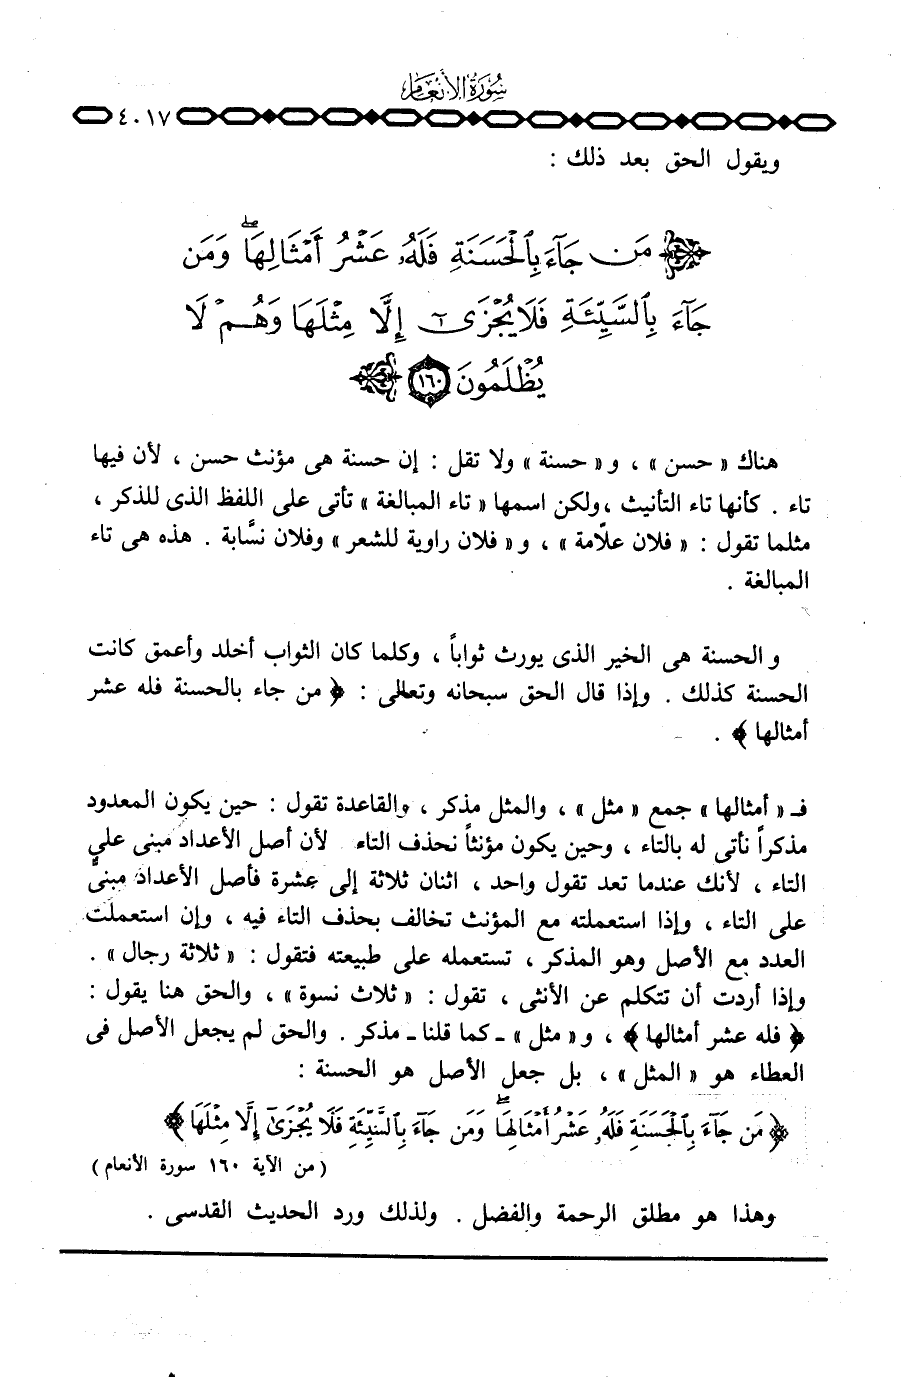 سورة الأنعام
٤٠١٧
ويقول الحق بعد ذلك :
﴿ مَن جَآءَ بِٱلْحَسَنَةِ فَلَهُۥ عَشْرُ أَمْثَالِهَا ۖ وَمَن
جَآءَ بِٱلسَّيِّئَةِ فَلَا يُجْزَىٰٓ إِلَّا مِثْلَهَا وَهُمْ لَا
يُظْلَمُونَ ١٦٠ ﴾
هناك « حسن » ، و « حسنة » ولا تقل : إن حسنة هى مؤنث حسن ، لأن فيها
تاء . كأنها تاء التأنيث ، ولكن اسمها « تاء المبالغة » تأتى على اللفظ الذى للذكر ،
مثلما تقول : « فلان علاّمة » ، و « فلان راوية للشعر » وفلان نسَّابة . هذه هى تاء
المبالغة .
و الحسنة هى الخير الذى يورث ثواباً ، وكلما كان الثواب أخلد وأعمق كانت
الحسنة كذلك . وإذا قال الحق سبحانه وتعالى : ﴿ من جاء بالحسنة فله عشر
أمثالها ﴾ .
فـ « أمثالها » جمع « مثل » ، والمثل مذكر ، والقاعدة تقول : حين يكون المعدود
مذكراً نأتى له بالتاء ، وحين يكون مؤنثاً نحذف التاء لأن أصل الأعداد مبنى على
التاء ، لأنك عندما تعد تقول واحد ، اثنان ثلاثة إلى عشرة فأصل الأعداد مبنىٌّ
على التاء ، وإذا استعملته مع المؤنث تخالف بحذف التاء فيه ، وإن استعملت
العدد مع الأصل وهو المذكر ، تستعمله على طبيعته فتقول : « ثلاثة رجال » .
وإذا أردت أن تتكلم عن الأنثى ، تقول : « ثلاث نسوة » ، والحق هنا يقول :
﴿ فله عشر أمثالها ﴾ ، و « مثل » ـ كما قلنا ـ مذكر . والحق لم يجعل الأصل فى
العطاء هو « المثل » ، بل جعل الأصل هو الحسنة :
﴿ مَن جَآءَ بِٱلْحَسَنَةِ فَلَهُۥ عَشْرُ أَمْثَالِهَا ۖ وَمَن جَآءَ بِٱلسَّيِّئَةِ فَلَا يُجْزَىٰٓ إِلَّا مِثْلَهَا ﴾
( من الآية ١٦٠ سورة الأنعام )
وهذا هو مطلق الرحمة والفضل . ولذلك ورد الحديث القدسى .